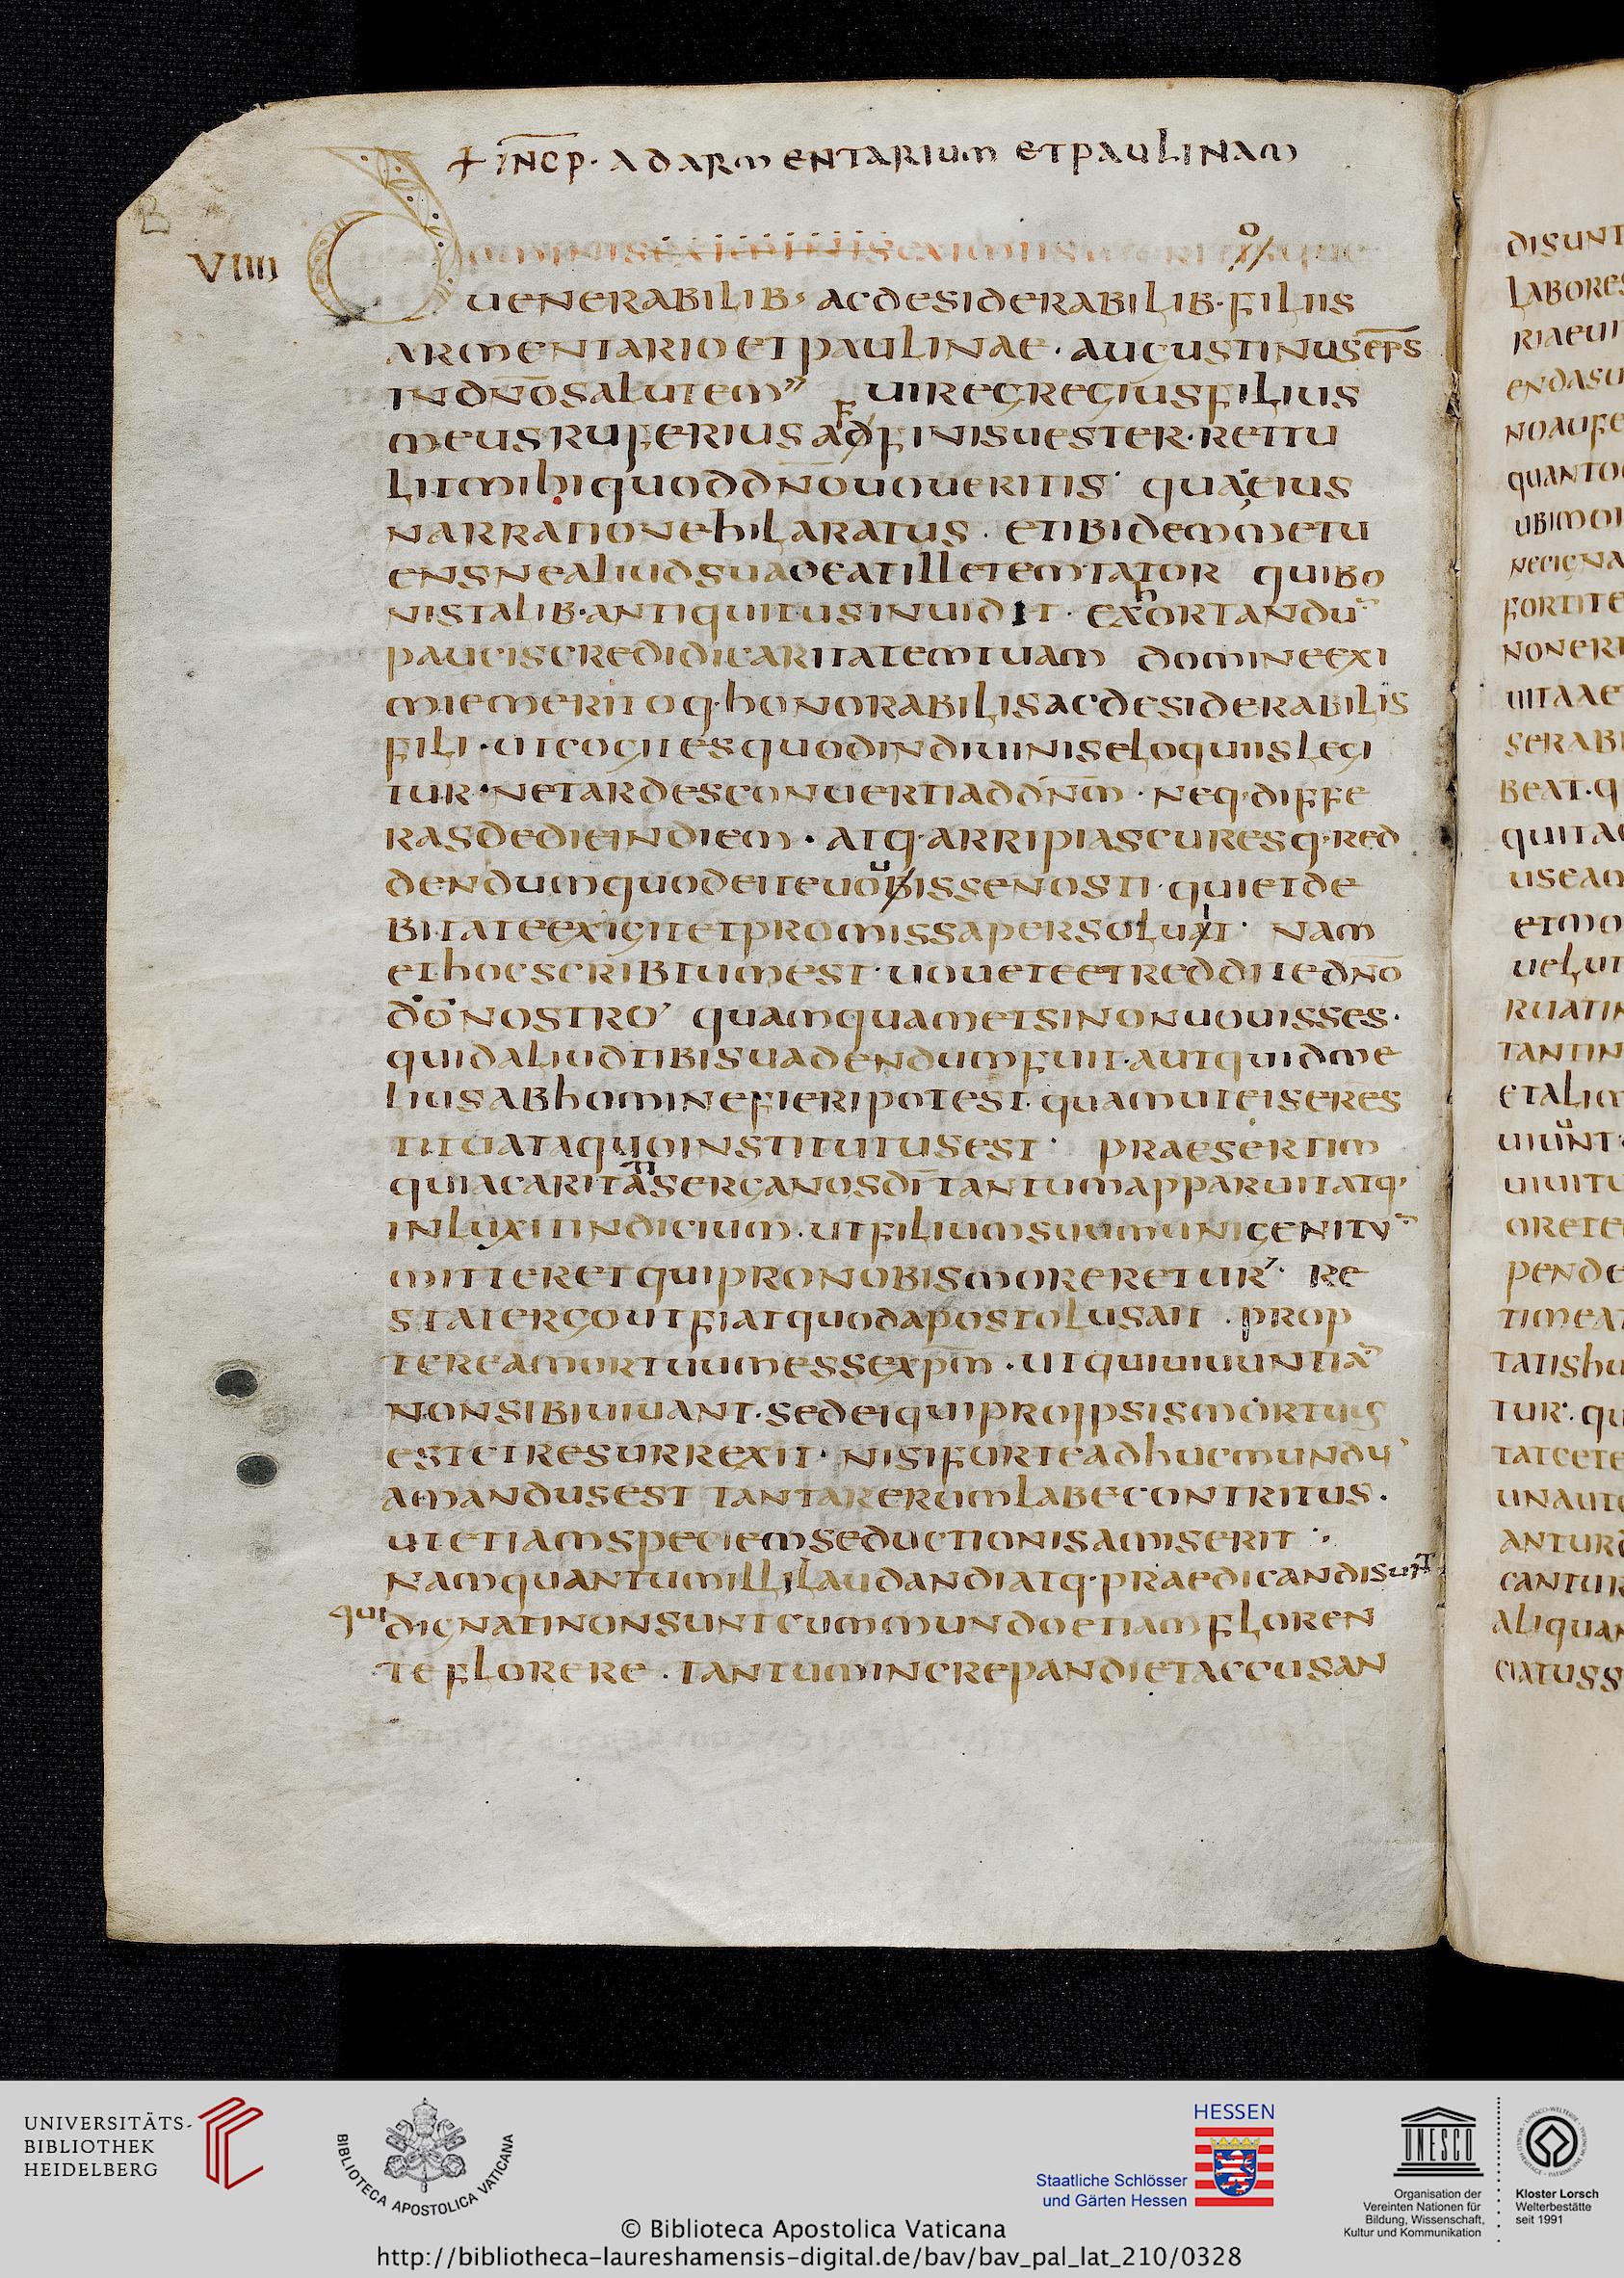 + INCP· AD ARMENTARIUM ET PAULINAM
B
VIIII
DOMINIS EXIMIIS EXIMIIS MERITOQUE
UENERABILIB· AC DESIDERABILIB· FILIIS
ARMENTARIO ET PAULINAE · AUGUSTINUS EPS
IN DNO SALUTEM UIR EGREGIUS FILIUS
MEUS RUFERIUS ADFINIS UESTER· RETTU
LIT MIHI QUOD DNO UOUERITIS· QUA EIUS
NARRATIONE HILARATUS · ET IBIDEM METU
ENS NE ALIUD SUADEAT ILLE TEMTATOR QUI BO
NIS TALIB· ANTIQUITUS INUIDIT · EXHORTANDU
PAUCIS CREDIDI CARITATEM TUAM DOMINE EXI
MIE MERITOQ· HONORABILIS AC DESIDERABILIS
FILI · UT COGITES QUOD IN DIUINIS ELOQUIIS LEGI
TUR · NE TARDES CONUERTI AD DNM · NEQ· DIFFE
RAS DE DIE IN DIEM · ATQ· ARRIPIAS CURESQ· RED
DENDUM QUOD EI TE UOUISSE NOSTI · QUI ET DE
BITA TE EXIGIT ET PROMISSA PERSOLUIT · NAM
ET HOC SCRIBTUM EST · UOUETE ET REDDITE DNO
DO NOSTRO QUAMQUAM ET SI NON UOUISSES·
QUID ALIUD TIBI SUADENDUM FUIT· AUT QUID ME
LIUS AB HOMINE FIERI POTEST· QUAM UT EI SE RES
TITUAT A QUO INSTITUTUS EST· PRAESERTIM
QUIA CARITAS ERGA NOS DI TANTUM APPARUIT ATQ·
INLUXIT INDICIUM · UT FILIUM SUUM UNIGENITU
MITTERET QUI PRO NOBIS MORERETUR· RE
STAT ERGO UT FIAT QUOD APOSTOLUS AIT · PROP
TEREA MORTUUM ESSE XPM · UT QUI UIUUNT IA
NON SIBI UIUANT· SED EI QUI PRO IPSIS MORTUUS
EST ET RESURREXIT· NISI FORTE ADHUC MUNDU
AMANDUS EST TANTA RERUM LABE CONTRITUS ·
UT ETIAM SPECIEM SEDUCTIONIS AMISERIT
NAM QUANTUM ILLI LAUDANDI ATQ· PRAEDICANDI SUNT
QUI DIGNATI NON SUNT CUM MUNDO ETIAM FLOREN
TE FLORERE · TANTUM INCREPANDI ET ACCUSAN
DISUNT
LABORES
UNIVERSITÄTS-
BIBLIOTHEK
HEIDELBERG
BIBLIOTECA APOSTOLICA VATICANA
HESSEN
Staatliche Schlösser
und Gärten Hessen
UNESCO
Organisation der
Vereinten Nationen für
Bildung, Wissenschaft,
Kultur und Kommunikation
Kloster Lorsch
Welterbestätte
seit 1991
© Biblioteca Apostolica Vaticana
http://bibliotheca-laureshamensis-digital.de/bav/bav_pal_lat_210/0328